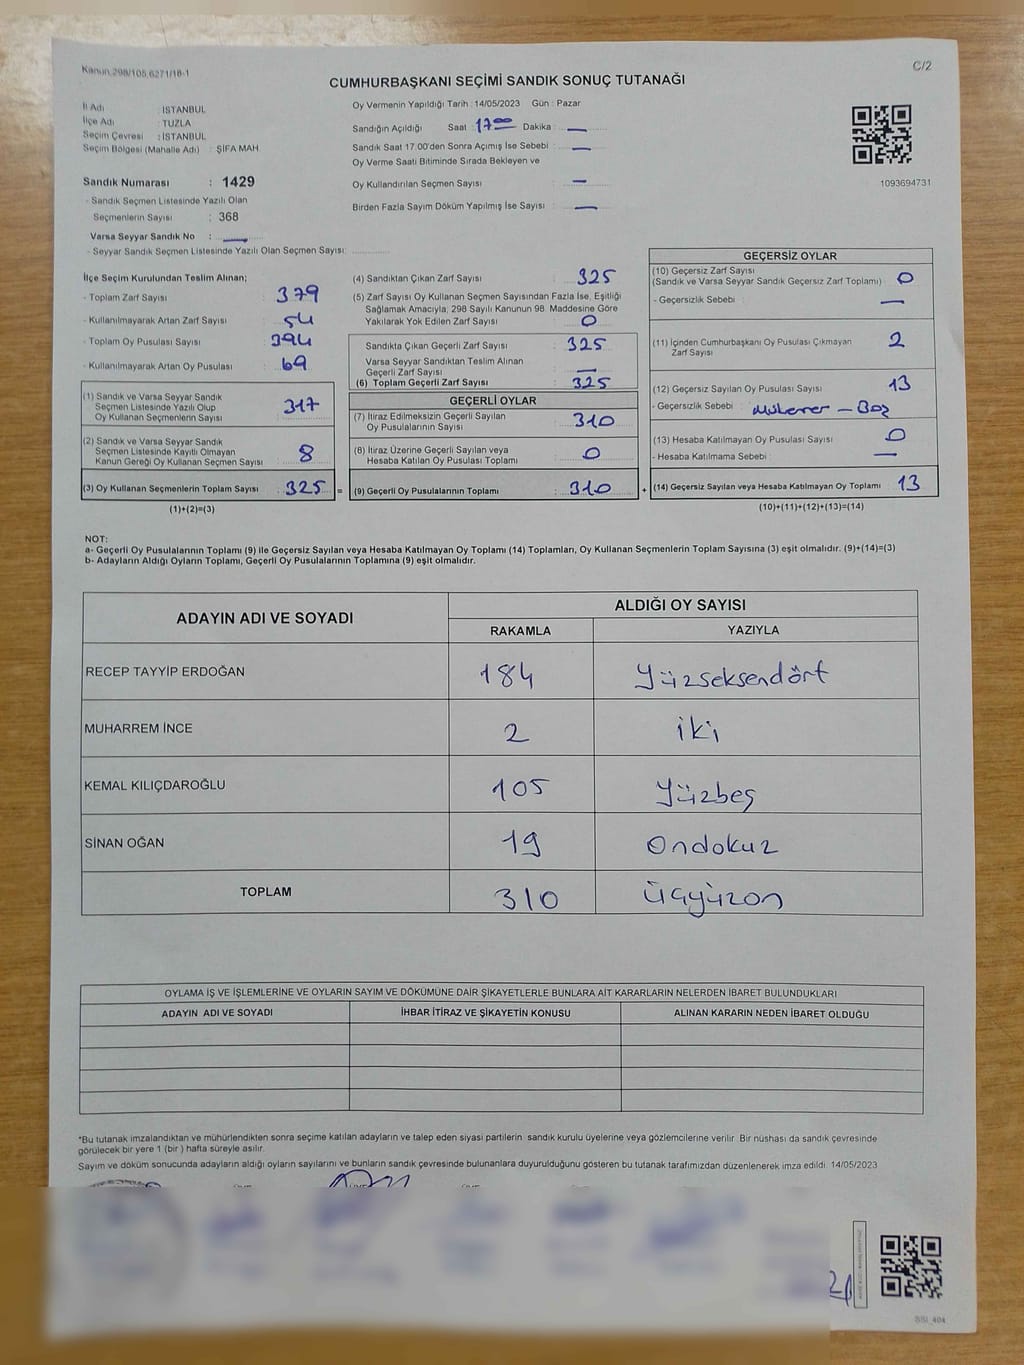 Kanun 298/105,6271/18-1
C/2
CUMHURBAŞKANI SEÇİMİ SANDIK SONUÇ TUTANAĞI
İl Adı : İSTANBUL
İlçe Adı : TUZLA
Seçim Çevresi : İSTANBUL
Seçim Bölgesi (Mahalle Adı) : ŞİFA MAH
Sandık Numarası : 1429
- Sandık Seçmen Listesinde Yazılı Olan
Seçmenlerin Sayısı : 368
Varsa Seyyar Sandık No : —
- Seyyar Sandık Seçmen Listesinde Yazılı Olan Seçmen Sayısı:
Oy Vermenin Yapıldığı Tarih : 14/05/2023 Gün : Pazar
Sandığın Açıldığı Saat : 17 00 Dakika : —
Sandık Saat 17:00'den Sonra Açımış İse Sebebi : —
Oy Verme Saati Bitiminde Sırada Bekleyen ve
Oy Kullandırılan Seçmen Sayısı : —
Birden Fazla Sayım Döküm Yapılmış İse Sayısı : —
1093694731
İlçe Seçim Kurulundan Teslim Alınan;
- Toplam Zarf Sayısı : 379
- Kullanılmayarak Artan Zarf Sayısı : 54
- Toplam Oy Pusulası Sayısı : 394
- Kullanılmayarak Artan Oy Pusulası : 69
(1) Sandık ve Varsa Seyyar Sandık
Seçmen Listesinde Yazılı Olup
Oy Kullanan Seçmenlerin Sayısı : 317
(2) Sandık ve Varsa Seyyar Sandık
Seçmen Listesinde Kayıtlı Olmayan
Kanun Gereği Oy Kullanan Seçmen Sayısı : 8
(3) Oy Kullanan Seçmenlerin Toplam Sayısı : 325 =
(1)+(2)=(3)
(4) Sandıktan Çıkan Zarf Sayısı : 325
(5) Zarf Sayısı Oy Kullanan Seçmen Sayısından Fazla İse, Eşitliği
Sağlamak Amacıyla; 298 Sayılı Kanunun 98. Maddesine Göre
Yakılarak Yok Edilen Zarf Sayısı : 0
Sandıkta Çıkan Geçerli Zarf Sayısı : 325
Varsa Seyyar Sandıktan Teslim Alınan
Geçerli Zarf Sayısı : —
(6) Toplam Geçerli Zarf Sayısı : 325
GEÇERLİ OYLAR
(7) İtiraz Edilmeksizin Geçerli Sayılan
Oy Pusulalarının Sayısı : 310
(8) İtiraz Üzerine Geçerli Sayılan veya
Hesaba Katılan Oy Pusulası Toplamı : 0
(9) Geçerli Oy Pusulalarının Toplamı : 310 +
GEÇERSİZ OYLAR
(10) Geçersiz Zarf Sayısı
(Sandık ve Varsa Seyyar Sandık Geçersiz Zarf Toplamı) : 0
- Geçersizlik Sebebi : —
(11) İçinden Cumhurbaşkanı Oy Pusulası Çıkmayan
Zarf Sayısı : 2
(12) Geçersiz Sayılan Oy Pusulası Sayısı : 13
- Geçersizlik Sebebi : Mükerrer – Boş
(13) Hesaba Katılmayan Oy Pusulası Sayısı : 0
- Hesaba Katılmama Sebebi : —
(14) Geçersiz Sayılan veya Hesaba Katılmayan Oy Toplamı : 13
(10)+(11)+(12)+(13)=(14)
NOT:
a- Geçerli Oy Pusulalarının Toplamı (9) ile Geçersiz Sayılan veya Hesaba Katılmayan Oy Toplamı (14) Toplamları, Oy Kullanan Seçmenlerin Toplam Sayısına (3) eşit olmalıdır. (9)+(14)=(3)
b- Adayların Aldığı Oyların Toplamı, Geçerli Oy Pusulalarının Toplamına (9) eşit olmalıdır.
ADAYIN ADI VE SOYADI
ALDIĞI OY SAYISI
RAKAMLA YAZIYLA
RECEP TAYYİP ERDOĞAN 184 Yüzseksendört
MUHARREM İNCE 2 iki
KEMAL KILIÇDAROĞLU 105 Yüzbeş
SİNAN OĞAN 19 Ondokuz
TOPLAM 310 Üçyüzon
OYLAMA İŞ VE İŞLEMLERİNE VE OYLARIN SAYIM VE DÖKÜMÜNE DAİR ŞİKAYETLERLE BUNLARA AİT KARARLARIN NELERDEN İBARET BULUNDUKLARI
ADAYIN ADI VE SOYADI İHBAR İTİRAZ VE ŞİKAYETİN KONUSU ALINAN KARARIN NEDEN İBARET OLDUĞU
*Bu tutanak imzalandıktan ve mühürlendikten sonra seçime katılan adayların ve talep eden siyasi partilerin sandık kurulu üyelerine veya gözlemcilerine verilir. Bir nüshası da sandık çevresinde
görülecek bir yere 1 (bir ) hafta süreyle asılır.
Sayım ve döküm sonucunda adayların aldığı oyların sayılarını ve bunların sandık çevresinde bulunanlara duyurulduğunu gösteren bu tutanak tarafımızdan düzenlenerek imza edildi. 14/05/2023
SSI_404